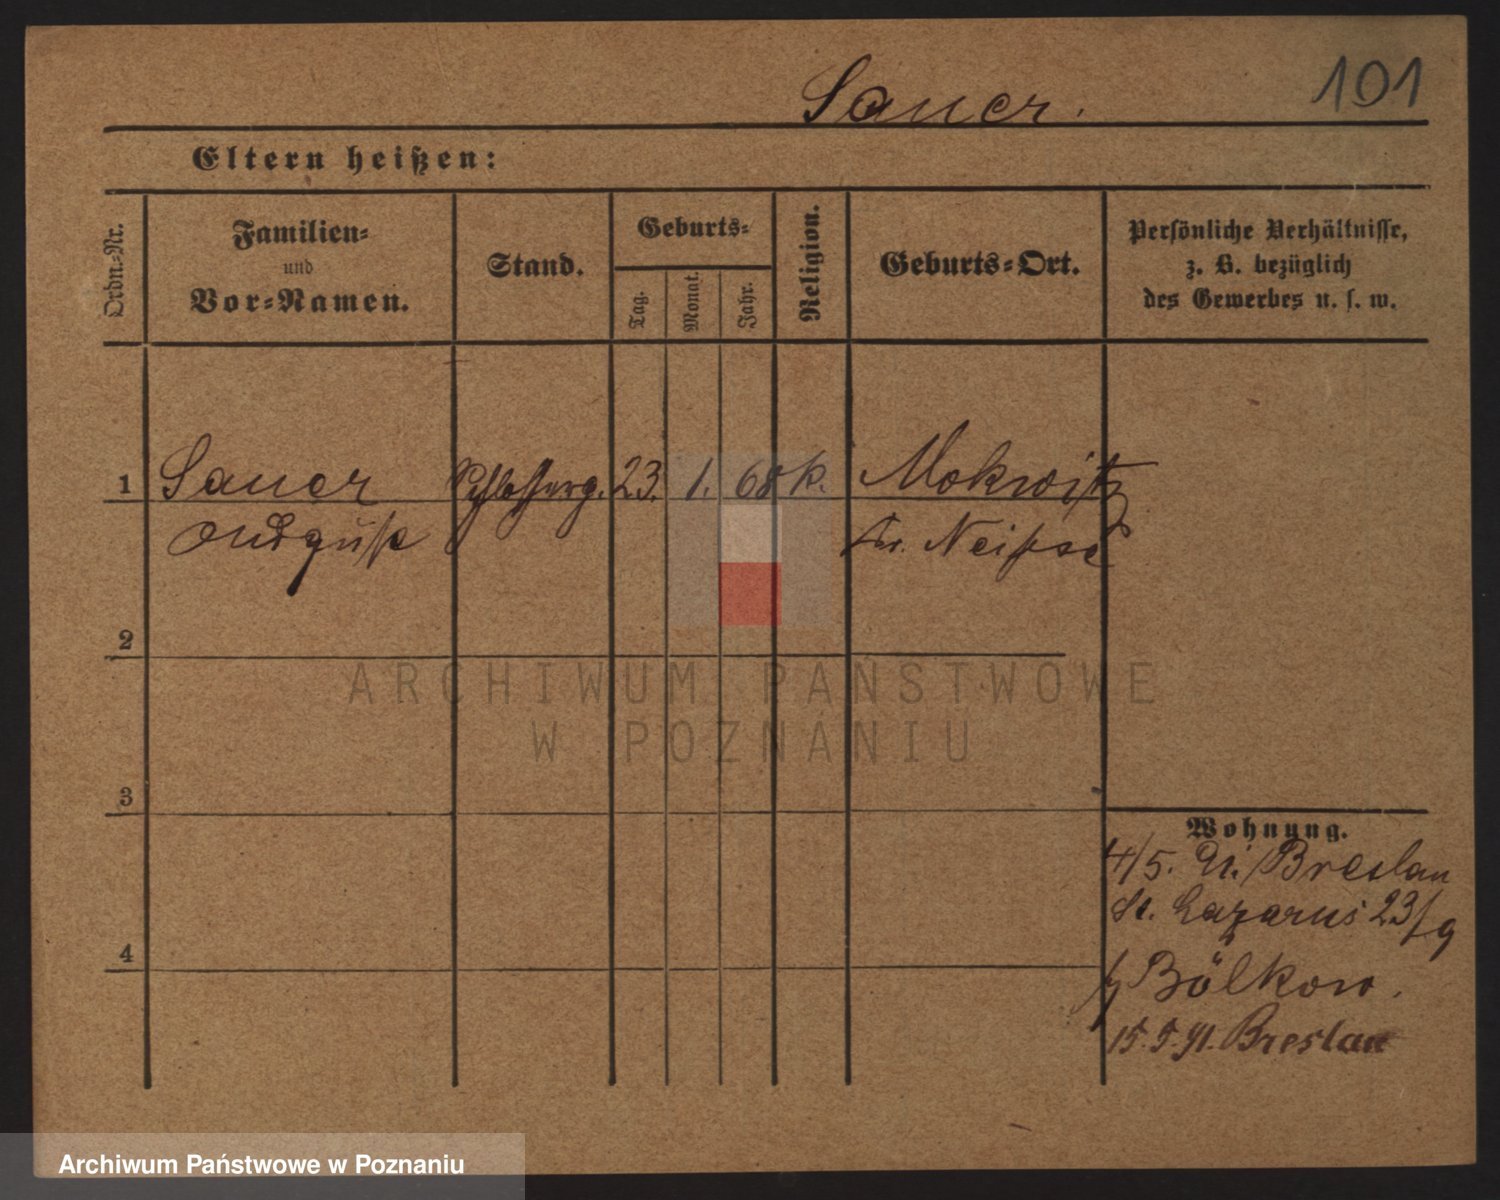 Sauer.
101
Eltern heißen:
Ordn.-Nr.
Familien-
und
Vor-Namen.
Stand.
Geburts-
Tag.
Monat.
Jahr.
Religion.
Geburts-Ort.
Persönliche Verhältnisse,
z. B. bezüglich
des Gewerbes u. s. w.
1 Sauer Schlosserg. 23. 1. 68 k. Mokwitz
August Kr. Neisse
2
ARCHIWUM PAŃSTWOWE
W POZNANIU
3
Wohnung.
4/5. 91. Breslau
St. Lazarus 23/9
4
b/ Bölkow.
15.5.91. Breslau
Archiwum Państwowe w Poznaniu